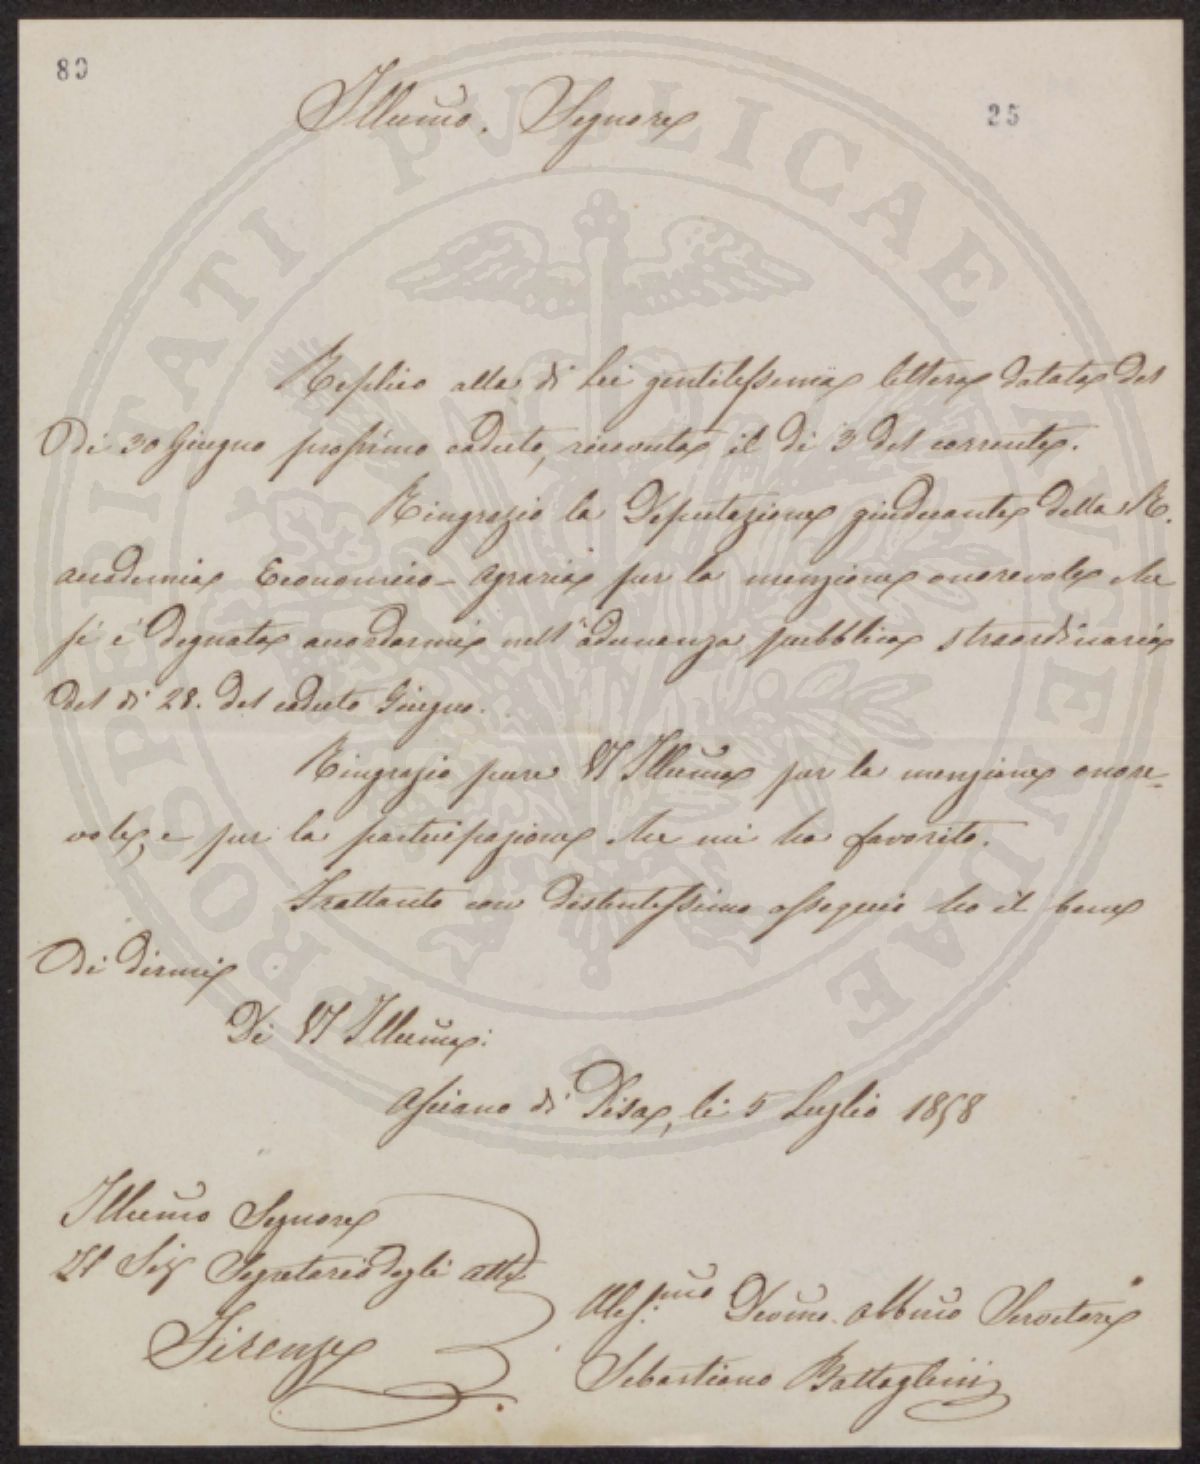 80
25
Illmo. Signore
Replico alla di Lei gentilissima lettera datata del
Di 30 Giugno prossimo caduto, ricevuta il di 3 del corrente.
Ringrazio la Deputazione giudicante della R.
accademia Economico-agraria per la menzione onorevole che
si è degnata accordarmi nell'adunanza pubblica straordinaria
del di 28. del caduto Giugno.
Ringrazio pure VS Illuma per la menzione onore-
vole, e per la partecipazione che mi ha favorito.
Frattanto con distintissimo ossequio ho il bene
Di dirmi
Di VS Illuma:
Asciano di Pisa, li 5 Luglio 1858
Illumo Signore
Il Sig Segretario degli atti
Firenze
Devmo. Obbmo Servitore
Sebastiano Battaglini
PROSPERITATI PUBLICAE AUGENDAE